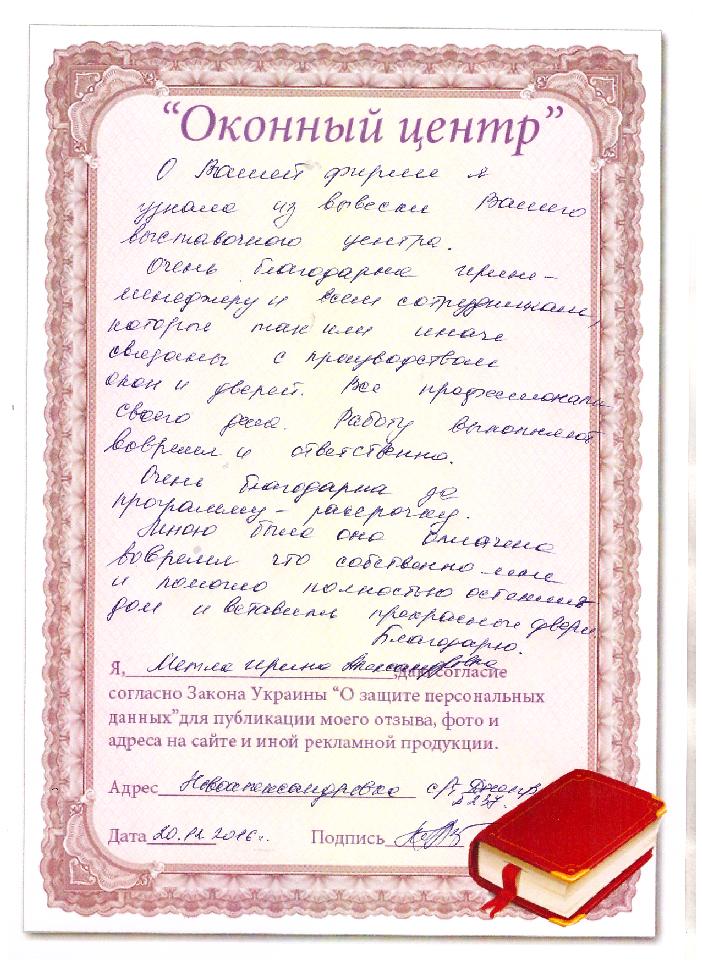 “Оконный центр”
О Вашей фирме я
узнала из вывески Вашего
выставочного центра.
Очень благодарна Ирине-
менеджеру и всем сотрудникам,
которые так или иначе
связаны с производством
окон и дверей. Все профессионалы
своего дела. Работу выполняют
вовремя и ответственно.
Очень благодарна за
программу - рассрочку.
Мною была она оплачена
вовремя что собственно мне
и помогло полностью остеклить
дом и вставить прекрасные двери.
Благодарю.
Я, Метла Ирина Александровна, даю согласие
согласно Закона Украины “О защите персональных
данных”для публикации моего отзыва, фото и
адреса на сайте и иной рекламной продукции.
Адрес Новоалександровка
Дата 20.12.2016г. Подпись